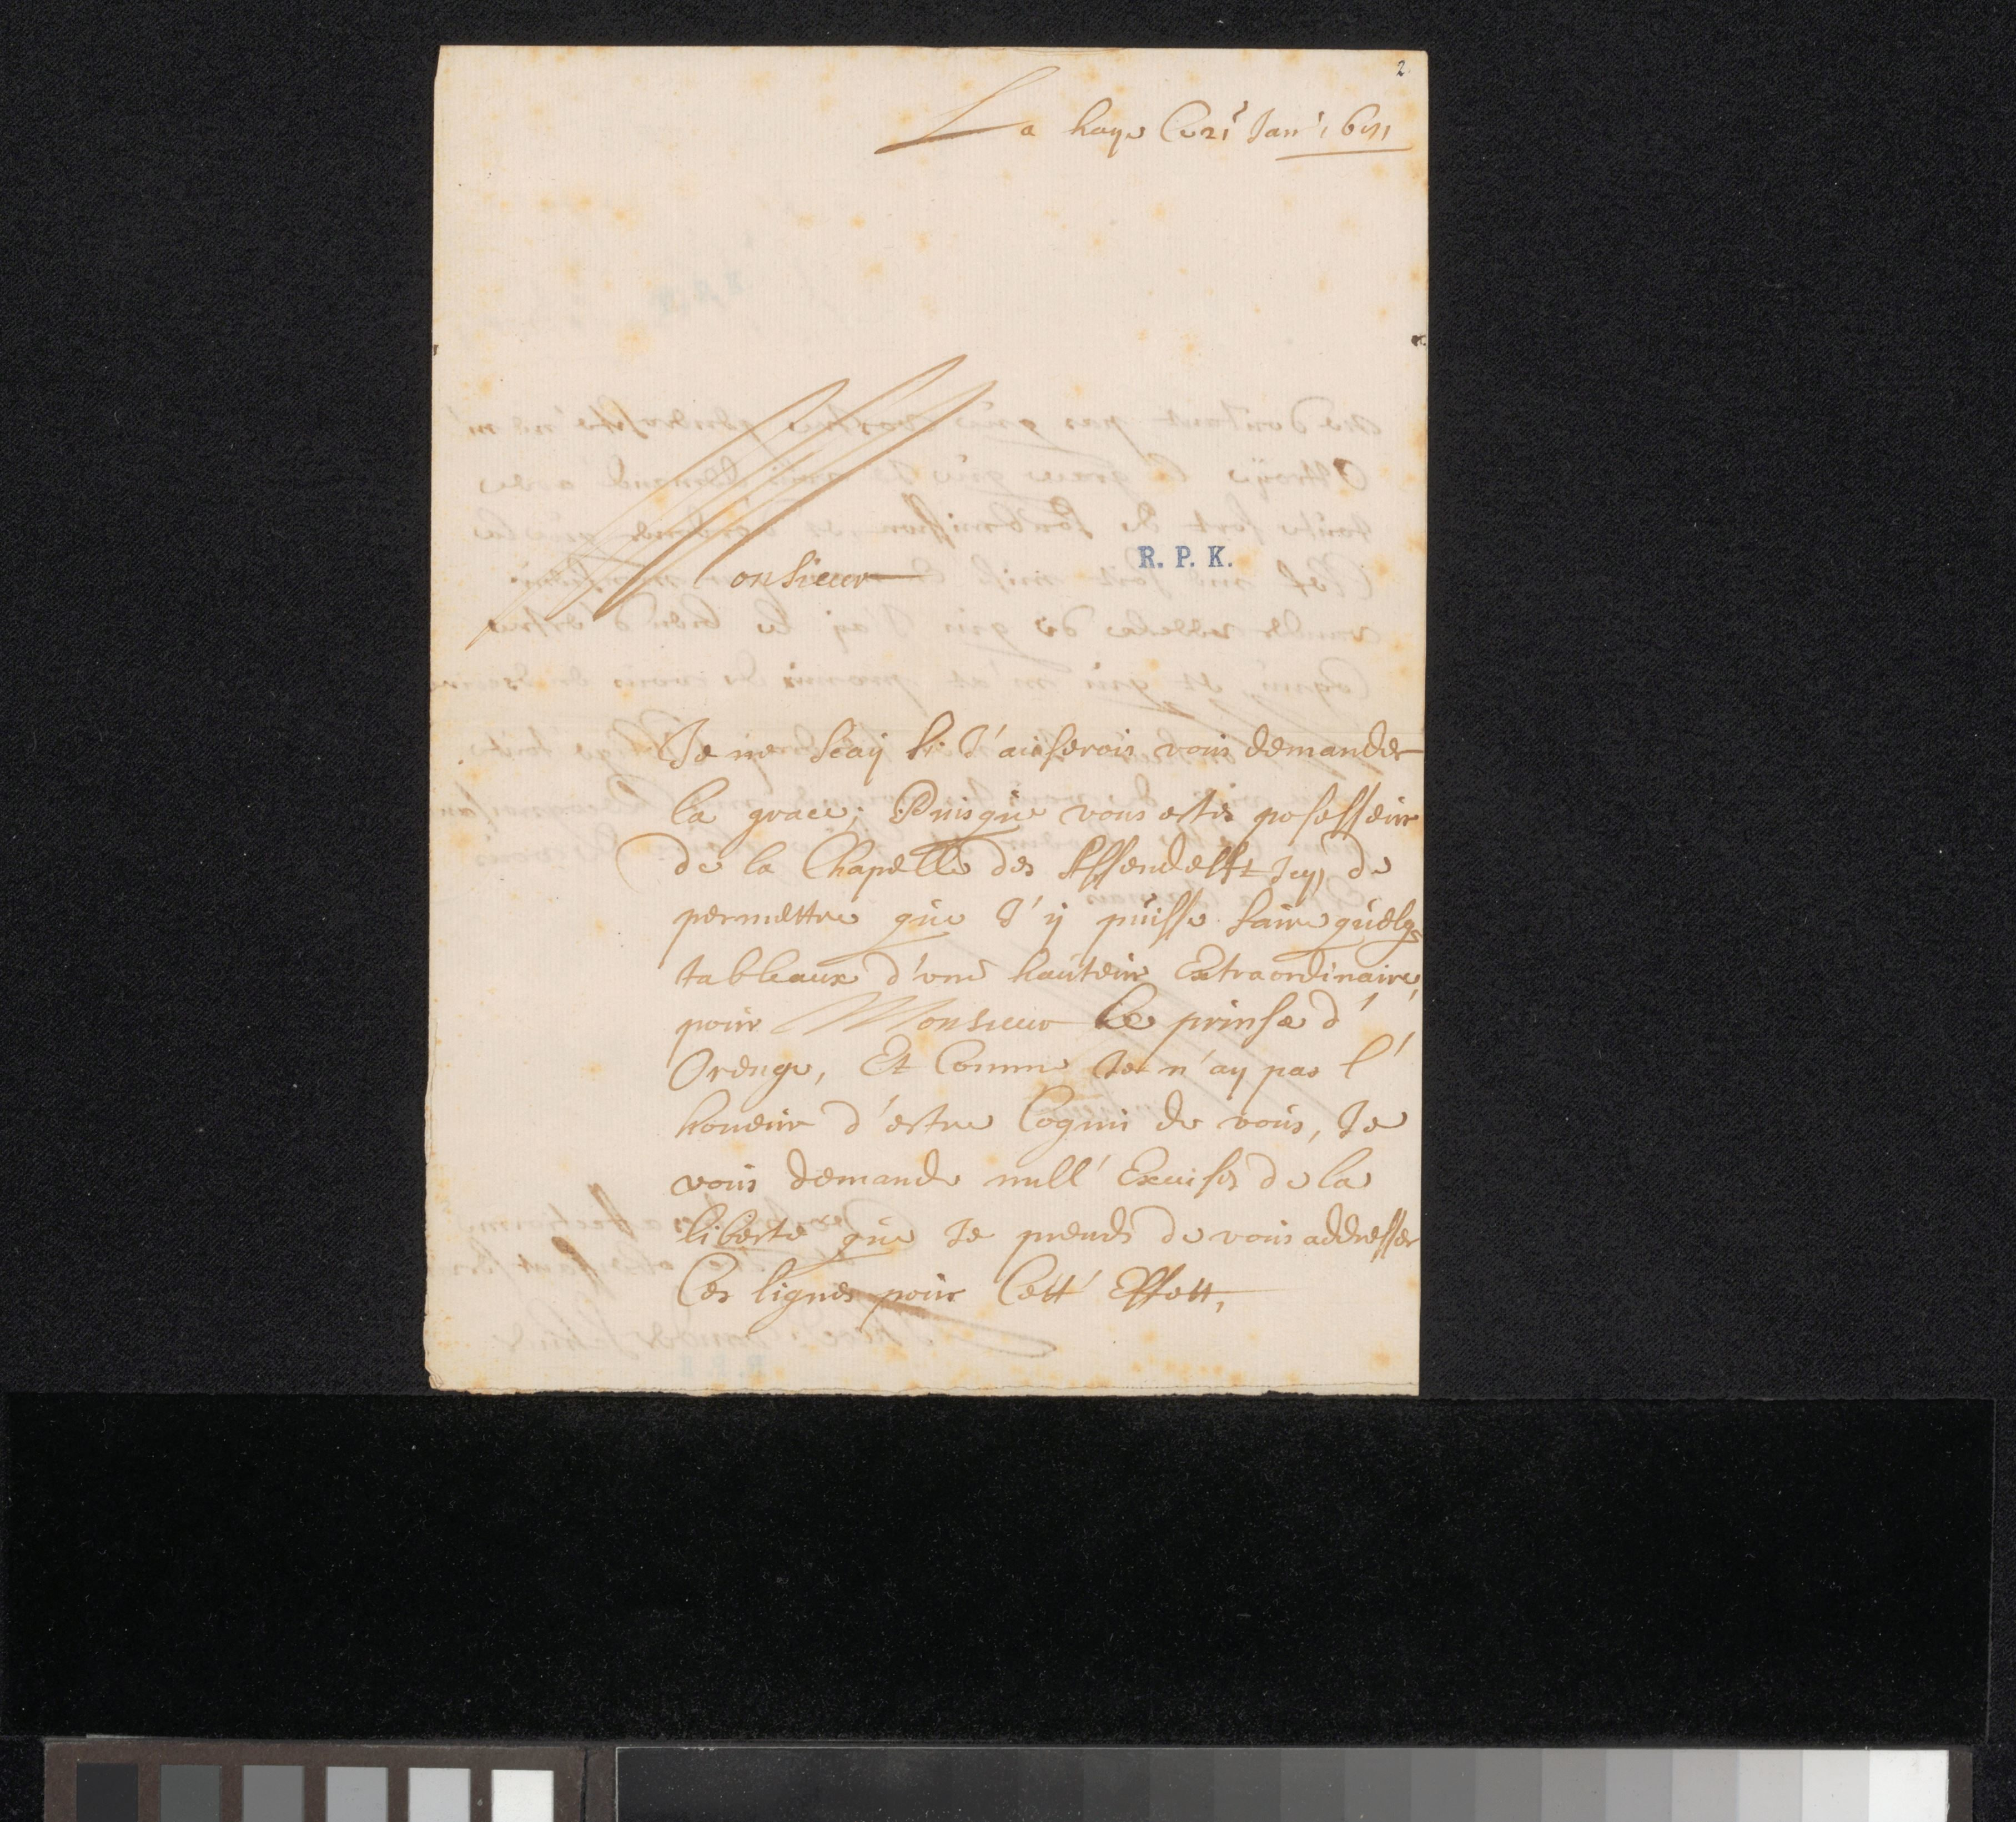 2
La haye Ce 21 Jan 
R. P. K.
Monsieur
Je ne scaij si J'auserois vous demander
la grace; Puisque vous estes posesseur
de la Chapelle des Assendelft Icy, de
permettre que J'ij puisse faire quelqs
tableaux d'une hauteur Extraordinaire,
pour Monsieur Le prinse d'
Orenge, Et Comme Je n'ay pas l'
honeur d'estre Cognu de vous, Je
vous demande mill' Excuises de la
liberte que Je prends de vous addresser
Ces lignes pour Cett' Effett,